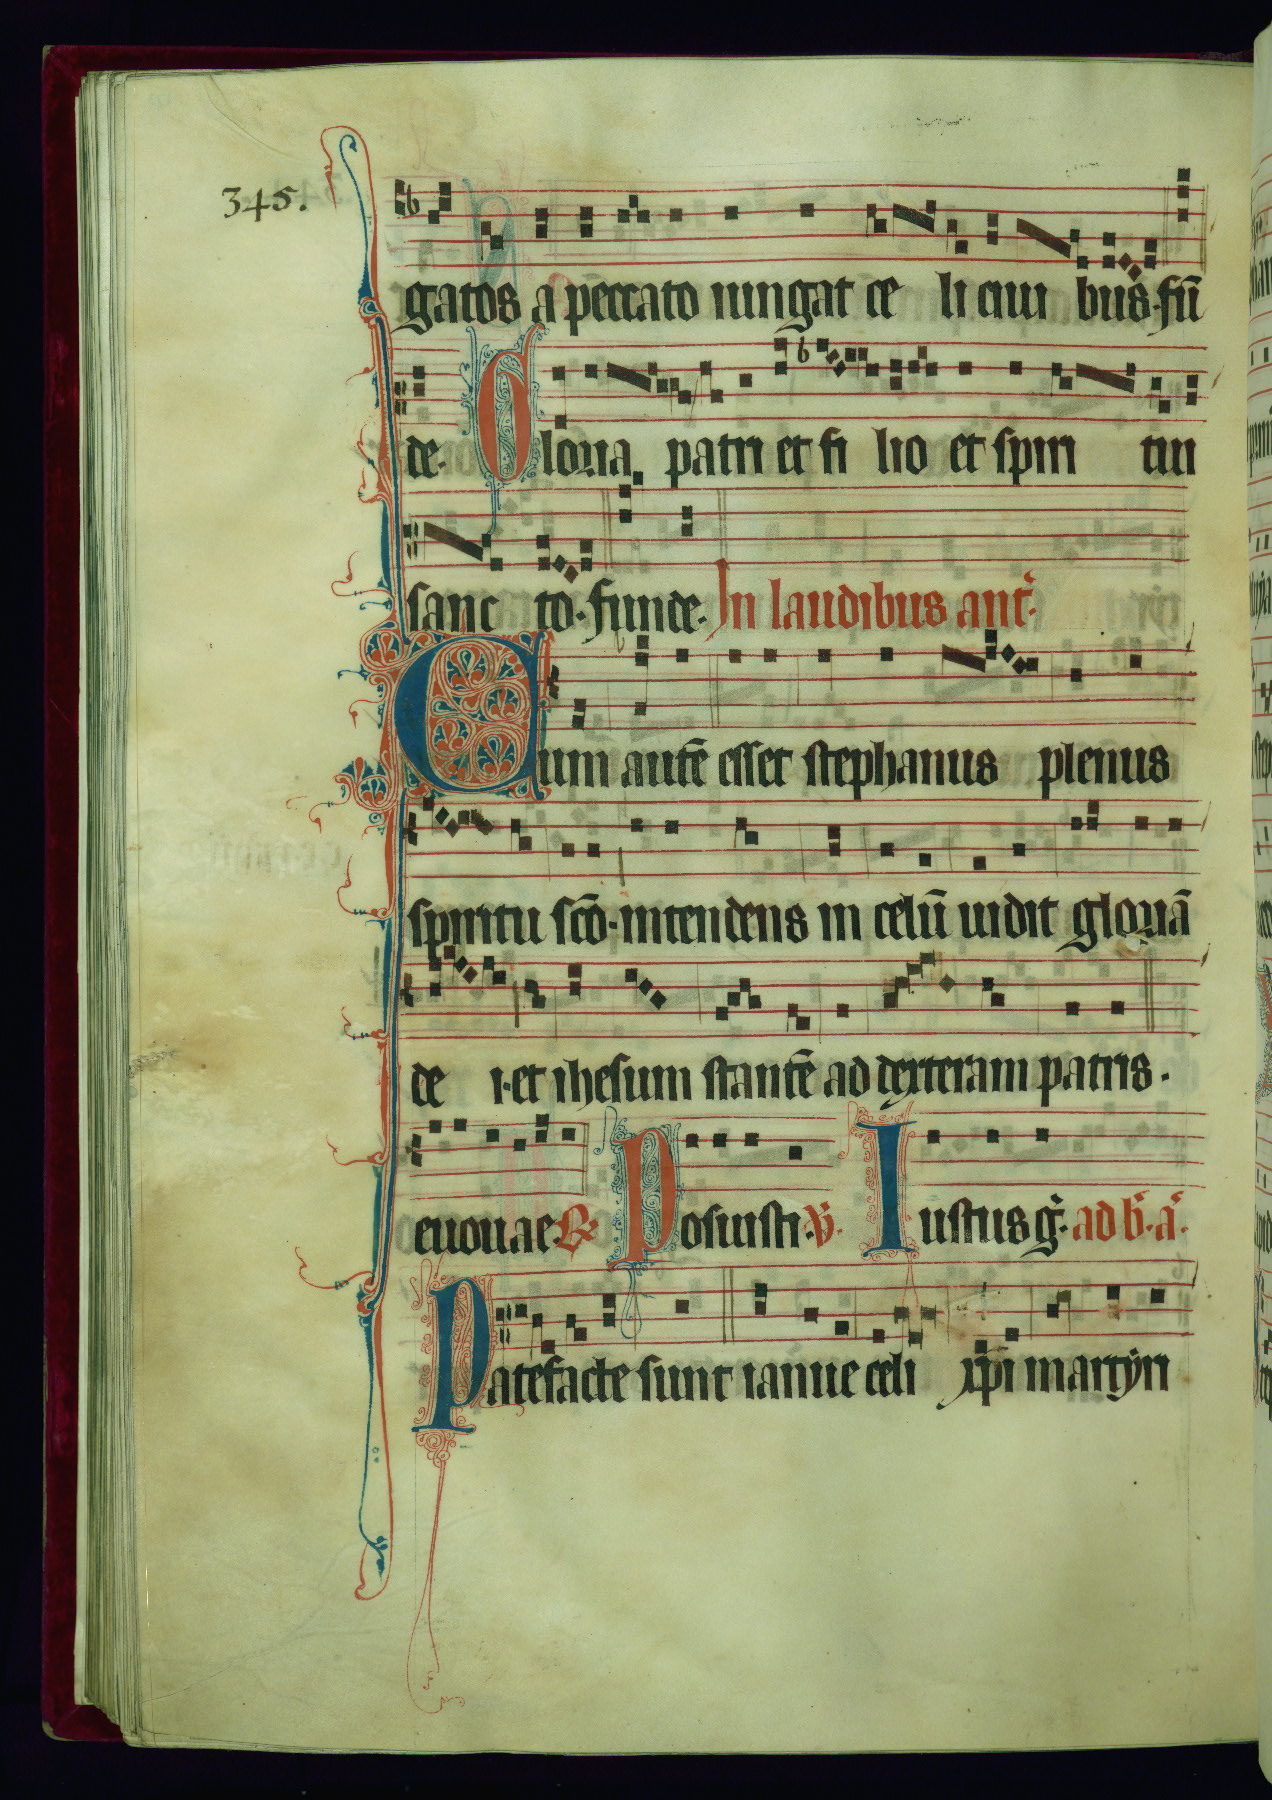 345.
gatos a peccato iungat ce li ciui bus. fū
de. Gloria patri et fi lio et spiri tui
sanc to. funde. In laudibus ant̄.
Cum autē esset stephanus plenus
spiritu sc̄o. intendens in celū uidit gloriā
de i. et ihesum stantē ad dexteram patris.
euouae. ℟. Posuisti. ℣. Iustus g̊. ad b̄. a̅.
Patefacte sunt ianue celi xp̄i martyri